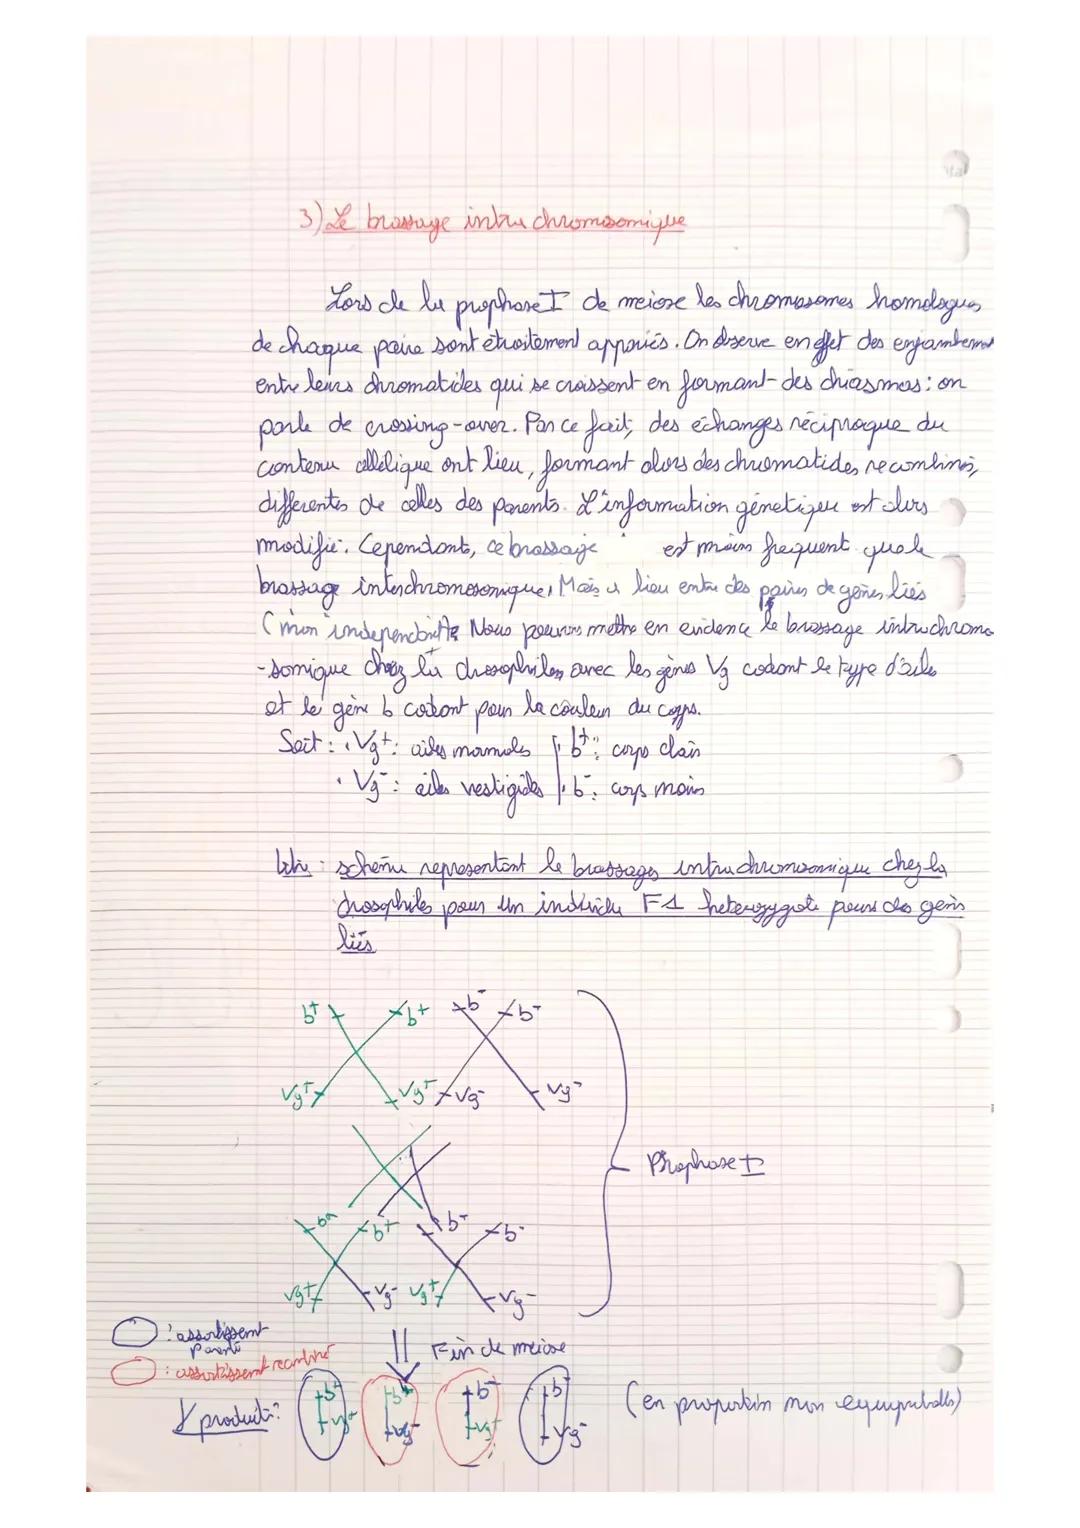 3) Le brassage intra chromosomique
Lors de la prophase I de meiose les chromosomes homologues
de chaque paire sont étroitement appariés. On observe en effet des enjambement
entre leurs chromatides qui se croissent en formant des chiasmas : on
parle de crossing-over. Par ce fait, des échanges réciproque du
contenu allélique ont lieu, formant alors des chromatides recombinés,
differentes de celles des parents. L'information génétique est alors
modifié. Cependant, ce brassage est moins frequent que le
brassage interchromosomique. Mais a lieu entre des paires de gènes liés
(non independants). Nous pouvons mettre en evidence le brassage intrachromo
-somique chez la drosophiles avec les gènes Vg codant le type d'ailes
et le gène b codant pour la couleur du corps.
Soit : • Vg+ : ailes normales • b+ : corps clair
• Vg- : ailes vestigiales • b- : corps noir
schema representant le brassages intrachromosomique chez la
drosophiles pour un individu F1 heterozygote pour des gènes
liés
b+ b+ b- b-
Vg+ Vg+ Vg- Vg-
Prophase I
b+ b- b-
Vg+ Vg- Vg+ Vg-
: assortissent
parental
: assortissent recombiné
Fin de meiose
produits :
b+ b+ b- b-
Vg+ Vg- Vg+ Vg-
(en proportion non equiprobable)